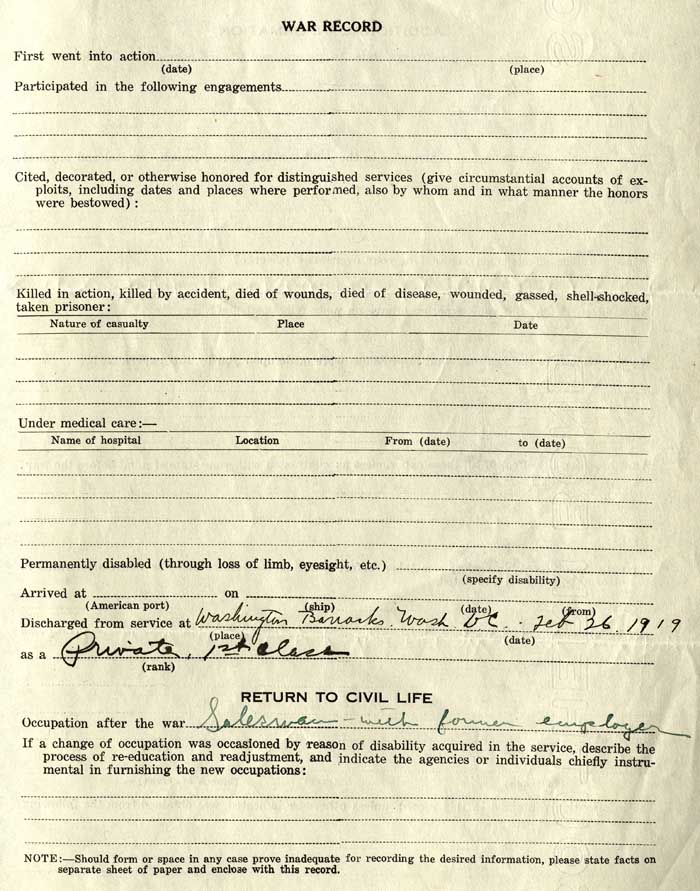 WAR RECORD
First went into action
(date) (place)
Participated in the following engagements
Cited, decorated, or otherwise honored for distinguished services (give circumstantial accounts of ex-
ploits, including dates and places where performed, also by whom and in what manner the honors
were bestowed) :
Killed in action, killed by accident, died of wounds, died of disease, wounded, gassed, shell-shocked,
taken prisoner:
Nature of casualty Place Date
Under medical care:—
Name of hospital Location From (date) to (date)
Permanently disabled (through loss of limb, eyesight, etc.)
(specify disability)
Arrived at on
(American port) (ship) (date) (from)
Discharged from service at Washington Barracks, Wash DC. Feb 26. 1919
(place) (date)
as a Private, 1st Class
(rank)
RETURN TO CIVIL LIFE
Occupation after the war Salesman - with former employer
If a change of occupation was occasioned by reason of disability acquired in the service, describe the
process of re-education and readjustment, and indicate the agencies or individuals chiefly instru-
mental in furnishing the new occupations:
NOTE:—Should form or space in any case prove inadequate for recording the desired information, please state facts on
separate sheet of paper and enclose with this record.